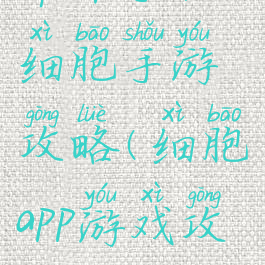 xì bāo shǒu yóu
细胞手游
gōng lüè xì bāo
攻略(细胞
yóu xì gōng
app游戏攻